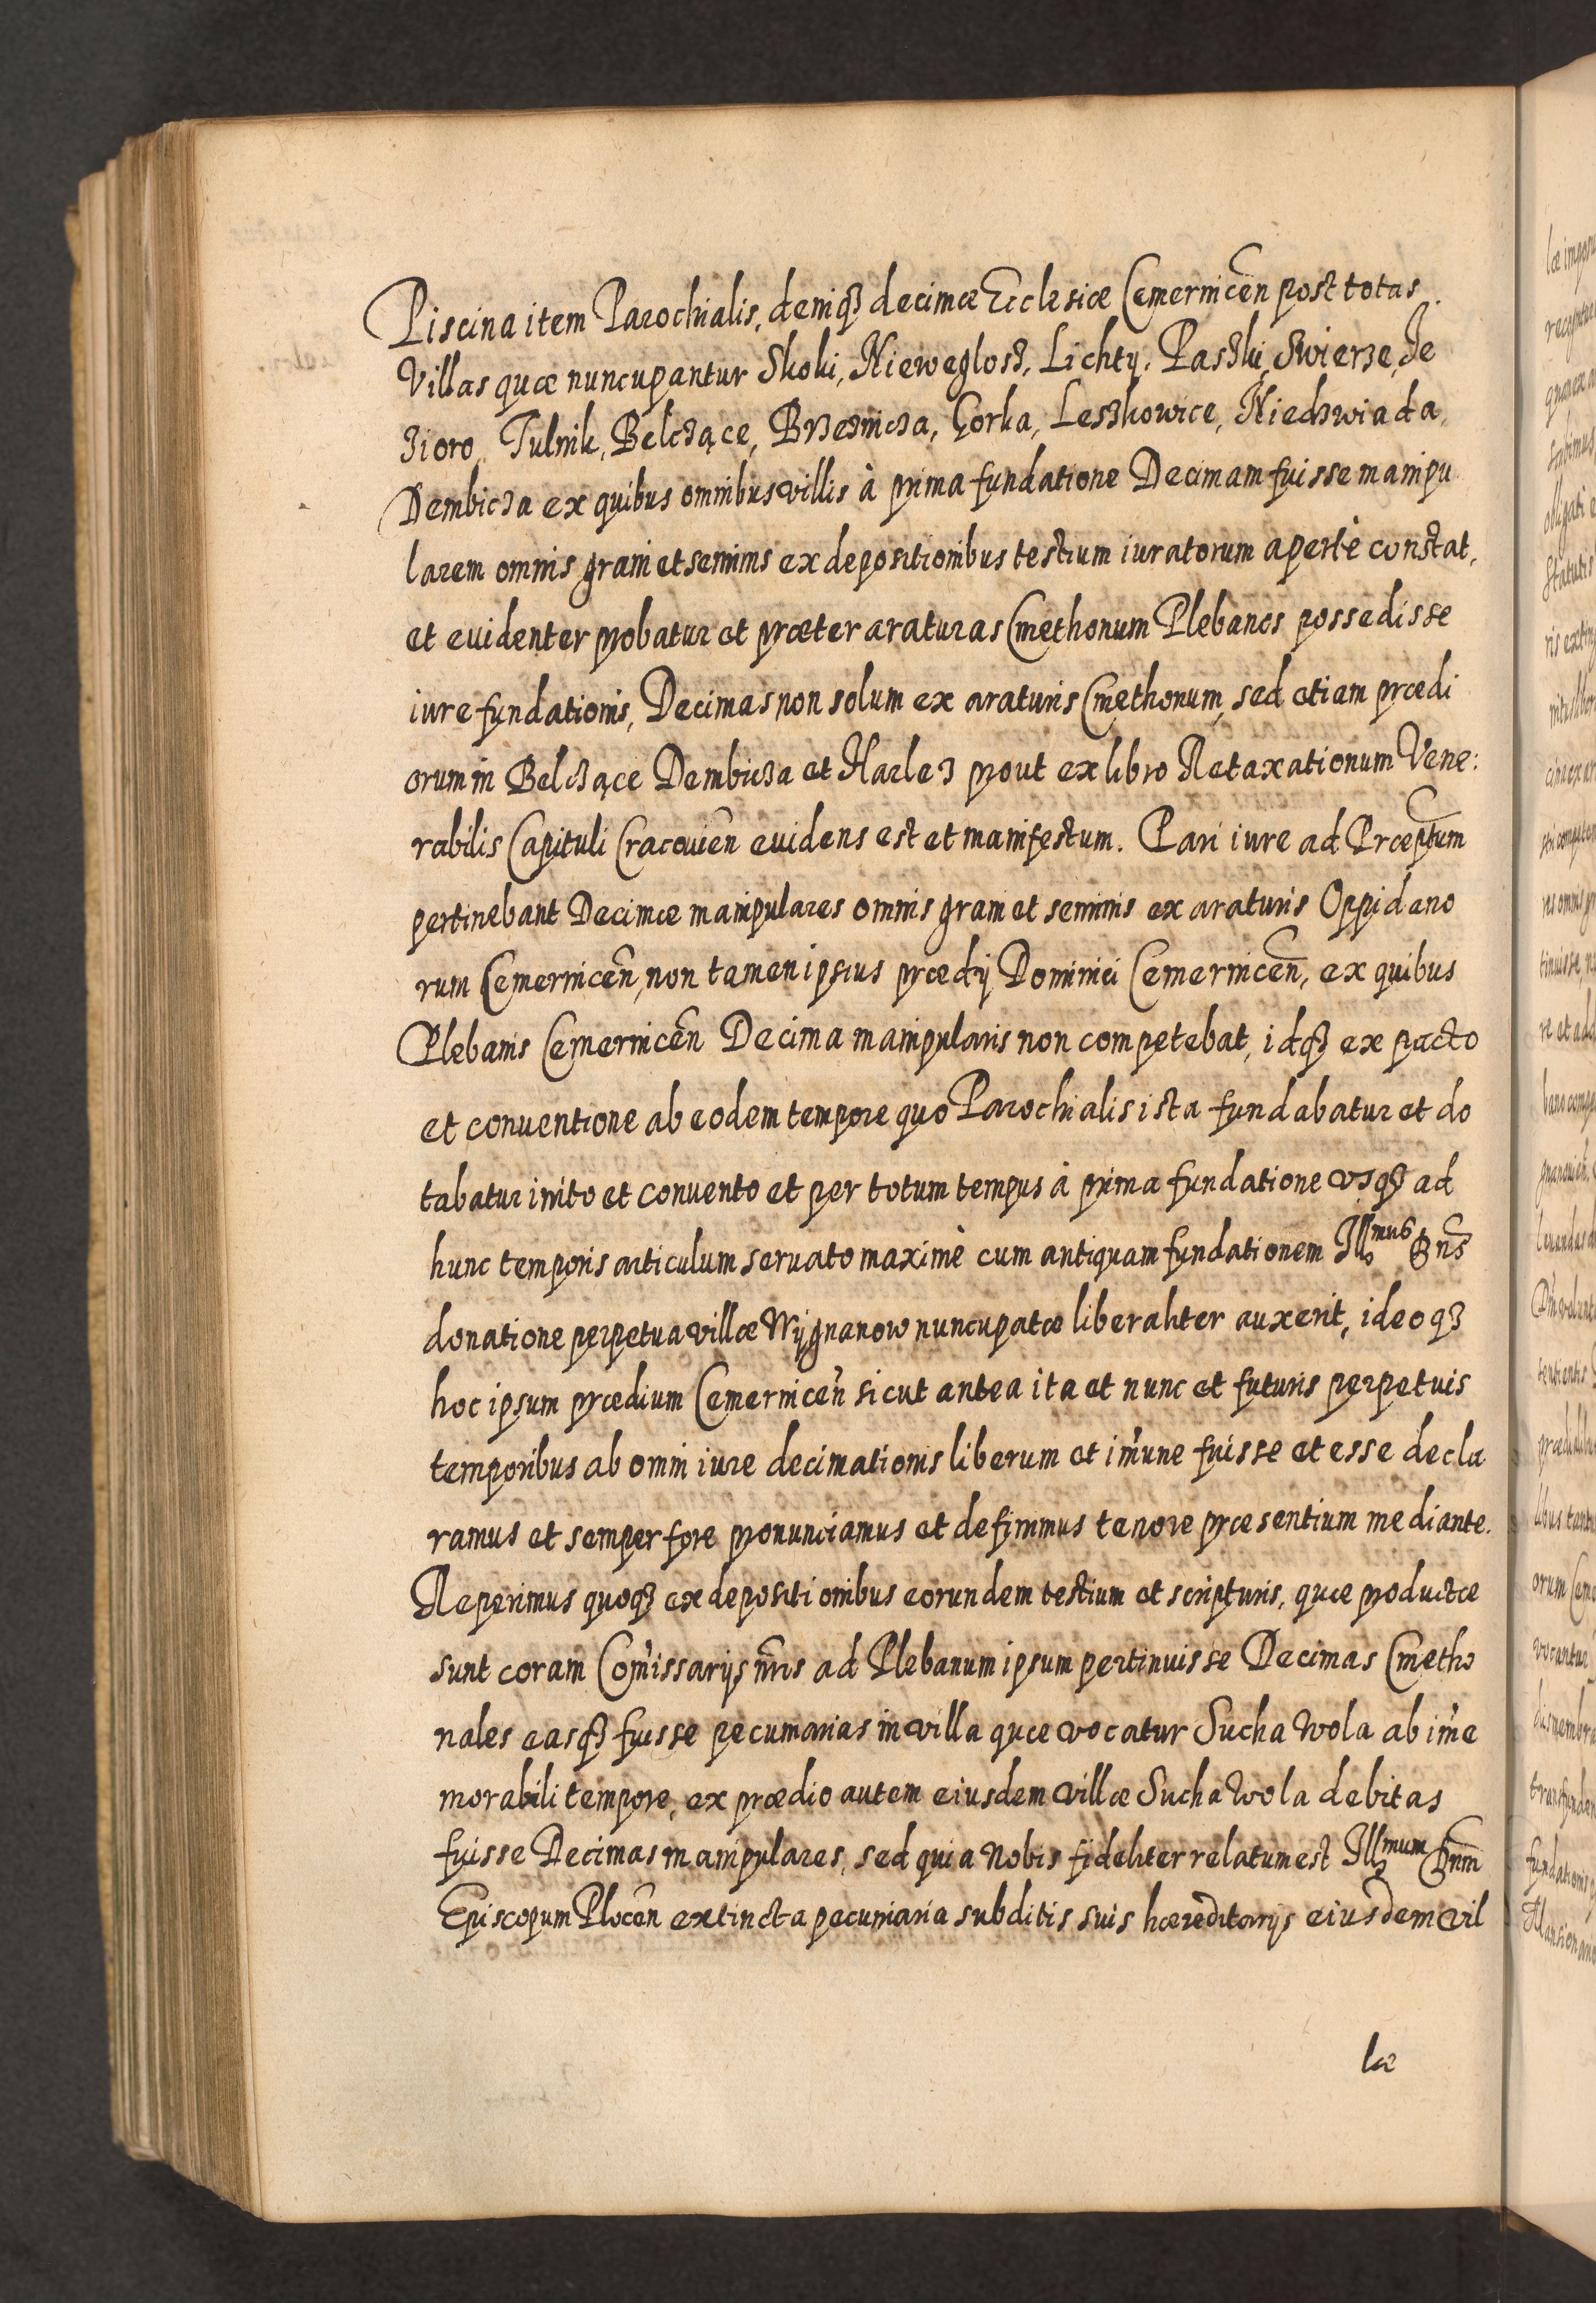 Piscina item Parochialis, deniqȝ decimæ Ecclesiæ Cemernicen̄ post totas
Villas quæ nuncupantur Skoki, Niewegłosz, Lichty, Paszki, Swierze, Je
zioro, Tulnik, Belczące, Brzeznicza, Gorka, Leszkowice, Niedzwiada,
Dembicza ex quibus omnibus villis à prima fundatione Decimam fuisse manipu
larem omnis grani et seminis ex depositionibus testium iuratorum apertè constat,
et euidenter probatur et præter araturas Cmethonum Plebanos possedisse
iure fundationis, Decimas non solum ex araturis Cmethonum, sed etiam prædi
orum in Belczące Dembicza et Harlez prout ex libro Retaxationum Vene:
rabilis Capituli Cracouien̄ euidens est et manifestum. Pari iure ad Præptum
pertinebant Decimæ manipulares omnis grani et seminis ex araturis Oppidano
rum Cemernicen̄, non tamen ipsius prædij Dominici Cemernicen̄, ex quibus
Plebanis Cemernicen̄ Decima manipularis non competebat, idqȝ ex pacto
et conuentione ab eodem tempore quo Parochialis ista fundabatur et do
tabatur inito et conuento et per totum tempus à prima fundatione vsqȝ ad
hunc temporis articulum seruato maximè cum antiquam fundationem Illmus Dn̄s
donatione perpetua villæ Wygnanow nuncupatæ liberaliter auxerit, ideoqȝ
hoc ipsum prædium Cemernicen̄ sicut antea ita et nunc et futuris perpetuis
temporibus ab omni iure decimationis liberum et im̄une fuisse et esse decla
ramus et semper fore pronunciamus et definimus tenore præsentium mediante.
Reperimus quoqȝ ex depositionibus eorundem testium et scripturis, quæ productæ
sunt coram Com̄issarijs nr̄is ad Plebanum ipsum pertinuisse Decimas Cmetho
nales easqȝ fuisse pecuniarias in villa quæ vocatur Sucha Wola ab im̄e
morabili tempore, ex prædio autem eiusdem villæ Sucha Wola debitas
fuisse Decimas manipulares, sed quia Nobis fideliter relatum est Illmum Dnm̄
Episcopum Plocen̄ extincta pecuniaria subditis suis hæreditarijs eiusdem vil
læ